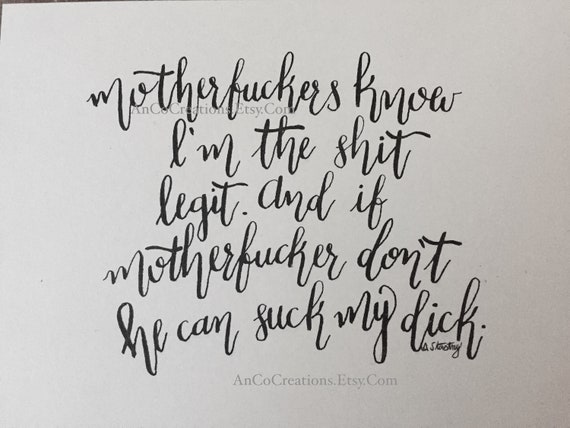 motherfuckers know
AnCoCreations.Etsy.Com
I'm the shit
legit. And if
motherfucker don't
he can suck my dick.
AnCoCreations.Etsy.Com